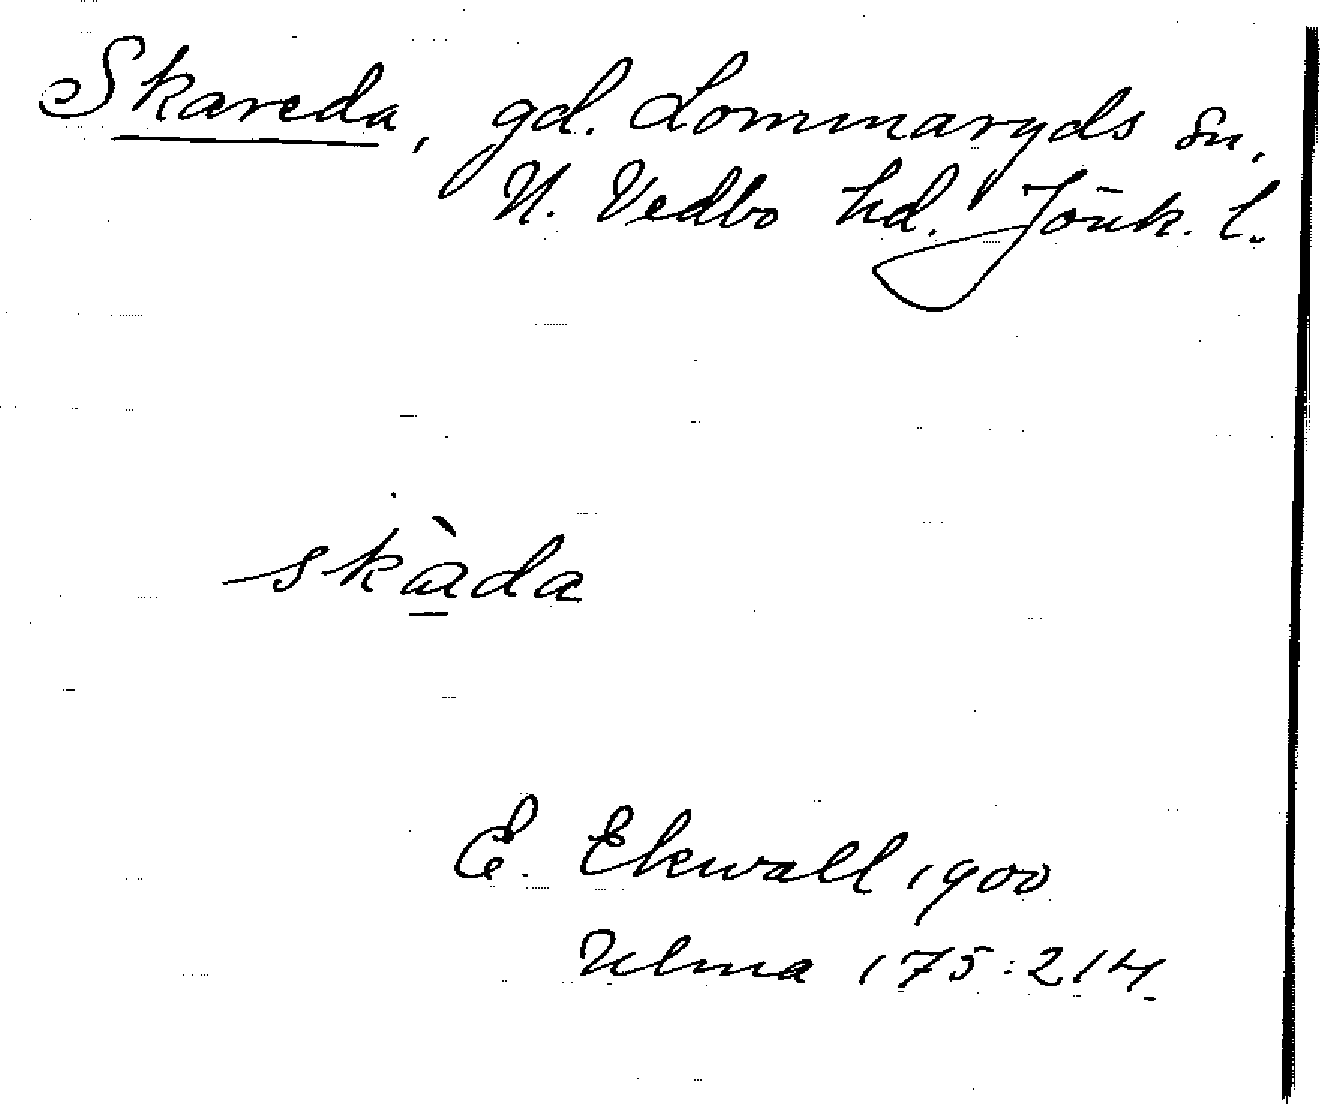 Skareda, gd. Lommaryds sn,
N. Vedbo hd. Jönk. l.
skàda
E. Ekwall 1900
Ulma 175:214.